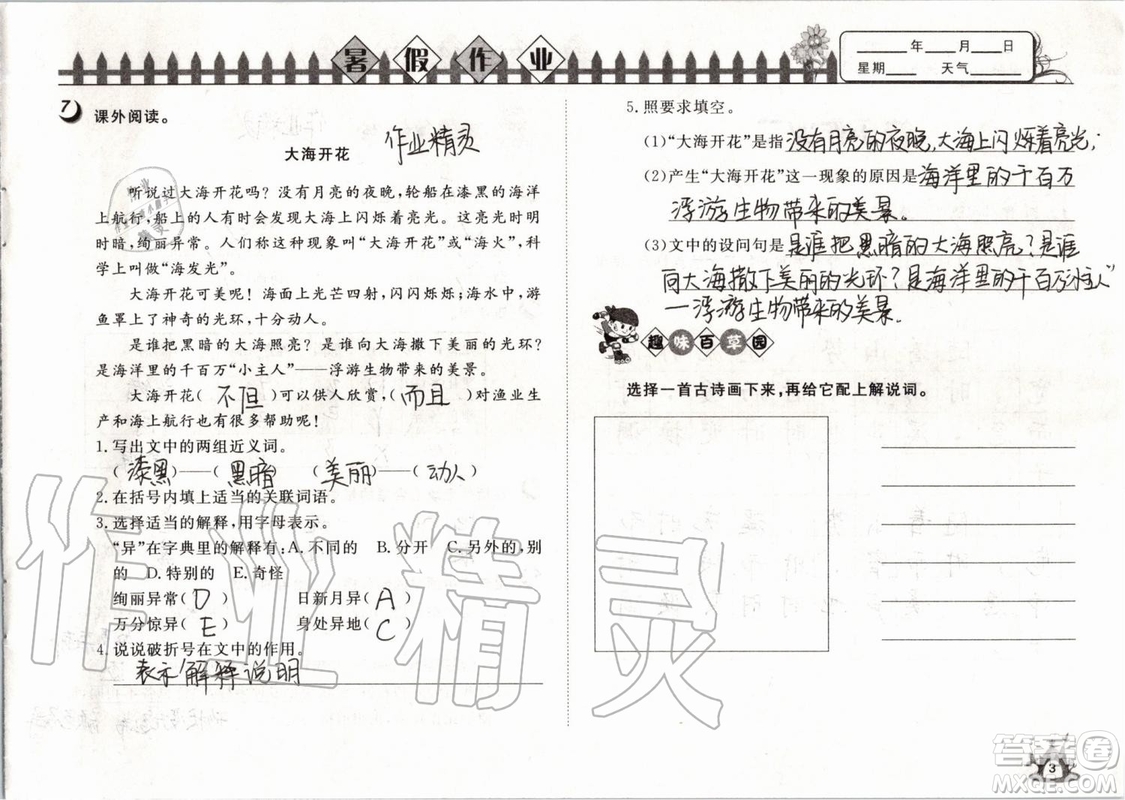 暑假作业
____年____月____日
星期____ 天气____
7 课外阅读。
大海开花 作业精灵
听说过大海开花吗？没有月亮的夜晚，轮船在漆黑的海洋
上航行，船上的人有时会发现大海上闪烁着亮光。这亮光时明
时暗，绚丽异常。人们称这种现象叫“大海开花”或“海火”，科
学上叫做“海发光”。
大海开花可美呢！海面上光芒四射，闪闪烁烁；海水中，游
鱼罩上了神奇的光环，十分动人。
是谁把黑暗的大海照亮？是谁向大海撒下美丽的光环？
是海洋里的千百万“小主人”——浮游生物带来的美景。
大海开花（不但）可以供人欣赏，（而且）对渔业生
产和海上航行也有很多帮助呢！
1. 写出文中的两组近义词。
（漆黑）——（黑暗） （美丽）——（动人）
2. 在括号内填上适当的关联词语。
3. 选择适当的解释，用字母表示。
“异”在字典里的解释有：A. 不同的 B. 分开 C. 另外的，别
的 D. 特别的 E. 奇怪
绚丽异常（D） 日新月异（A）
万分惊异（E） 身处异地（C）
4. 说说破折号在文中的作用。
表示解释说明
5. 照要求填空。
（1）“大海开花”是指没有月亮的夜晚，大海上闪烁着亮光；
（2）产生“大海开花”这一现象的原因是海洋里的千百万
浮游生物带来的美景。
（3）文中的设问句是是谁把黑暗的大海照亮？是谁
向大海撒下美丽的光环？是海洋里的千百万“小主人”
—浮游生物带来的美景。
趣味百草园
选择一首古诗画下来，再给它配上解说词。
作业精灵
答案卷
MXQE.COM
3